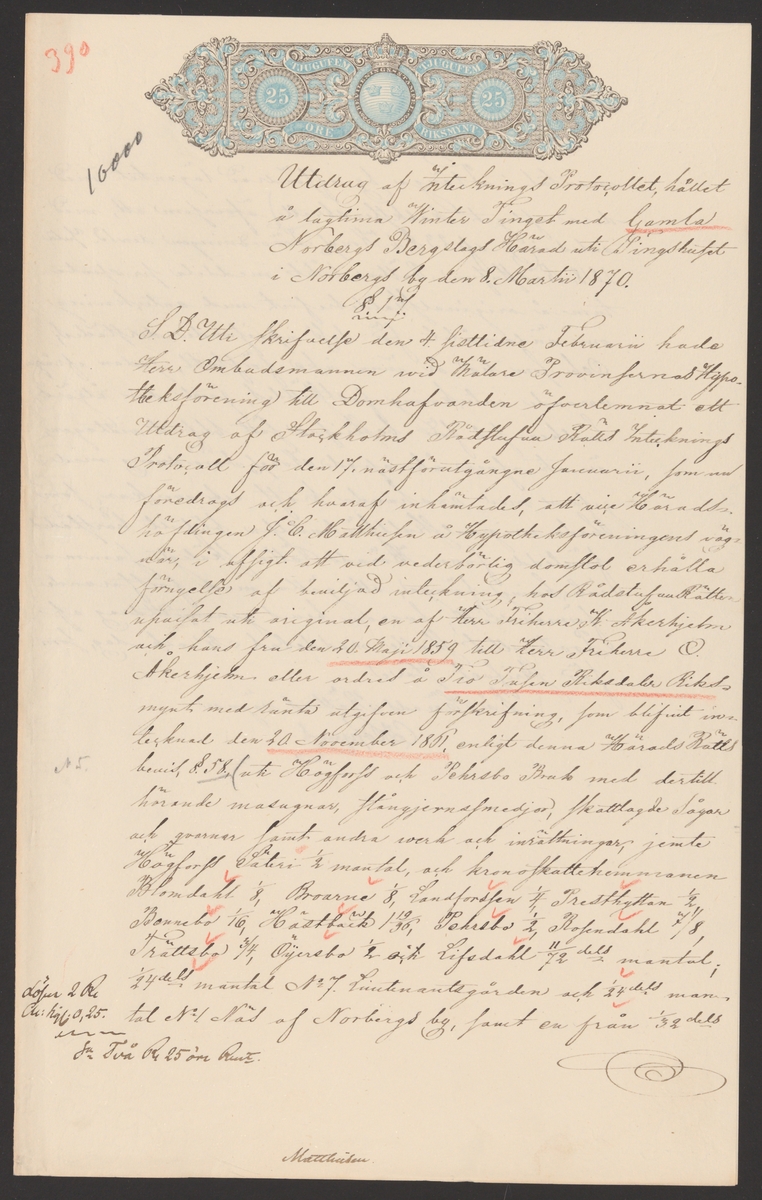 390
TJUGUFEM TJUGUFEM
25 25
ÖRE RIKSMYNT
10000
Utdrag af Intecknings Protocollet, hållet
å lagtima Winter Tinget med Gamla
Norbergs Bergslags Härad uti Tingshuset
i Norbergs by den 8. Martii 1870.
§ 1
S. D. Uti skrifvelse den 4 sistlidne Februarii hade
Herr Ombudsmannen wid Mälare Provinsernas Hypo-
theksförening till Domhafvanden öfverlemnat ett
Utdrag af Stockholms Rådstufvu Rätts Intecknings
Protocoll för den 17. nästförutgångne Januarii, som nu
föredrogs och hvaraf inhämtades, att vice Härads-
höfdingen J. C. Matthiesen å Hypotheksföreningens väg-
nar, i afsigt att vid vederbörlig domstol erhålla
förnyelse af beviljad inteckning, hos Rådstufvu Rätten
uppvisat uti original, en af Herr Friherre K. Åkerhjelm
och hans fru den 20. Maji 1859 till Herr Friherre O.
Åkerhjelm eller ordres å Tio Tusen Riksdaler Riks-
mynt med ränta utgifven förskrifning, som blifvit in-
tecknad den 20 November 1861, enligt denna Härads Rätts
bevis, § 58, uti Högforss och Pehrsbo Bruk med dertill
N 5.
hörande masugnar, stångjernssmedjor, skattlagde Sågar
och qvarnar samt andra werk och inrättningar, jemte
Högforss Säteri 1/2 mantal, och kronoskattehemmanen
Blomdahl 1/8, Broarne 1/8, Landforssen 1/4, Presthyttan 1/2,
Bennebo 1/16, Hästbäck 1 19/36, Pehrsbo 1/2, Rosendahl 1/8,
Trättsbo 3/4, Öyersbo 1/2 och Lifsdahl 11/72 dels mantal;
1/24 dels mantal No 7. Lieutenantsgården och 1/24 dels man-
tal No 1 Näs af Norbergs by, samt en från 1/32 dels
Lösen 2 Rd
Ch: sig: 0,25.
Sa Två Rd 25 öre Rmt.
Matthiesen